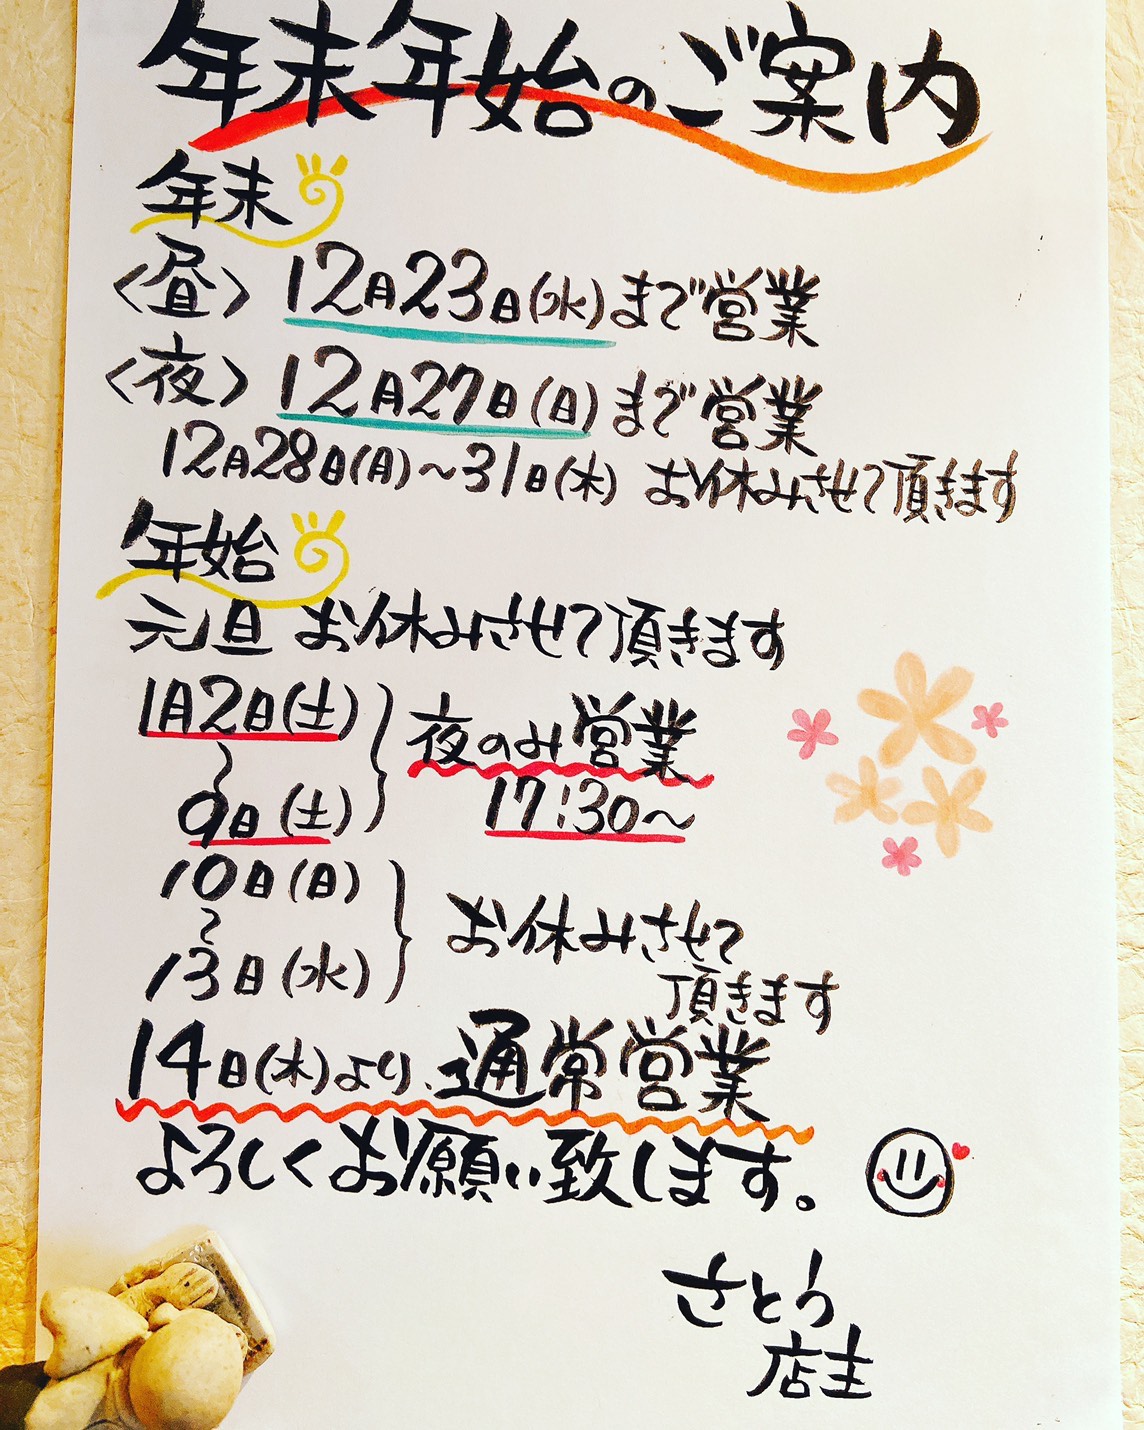 年末年始のご案内
年末
〈昼〉 12月23日(水)まで営業
〈夜〉 12月27日(日)まで営業
12月28日(月)〜31日(木) お休みさせて頂きます
年始
元旦 お休みさせて頂きます
1月2日(土)
〜
9日(土)
夜のみ営業
17:30〜
10日(日)
〜
13日(水)
お休みさせて
頂きます
14日(木)より、通常営業
よろしくお願い致します。
さとう
店主